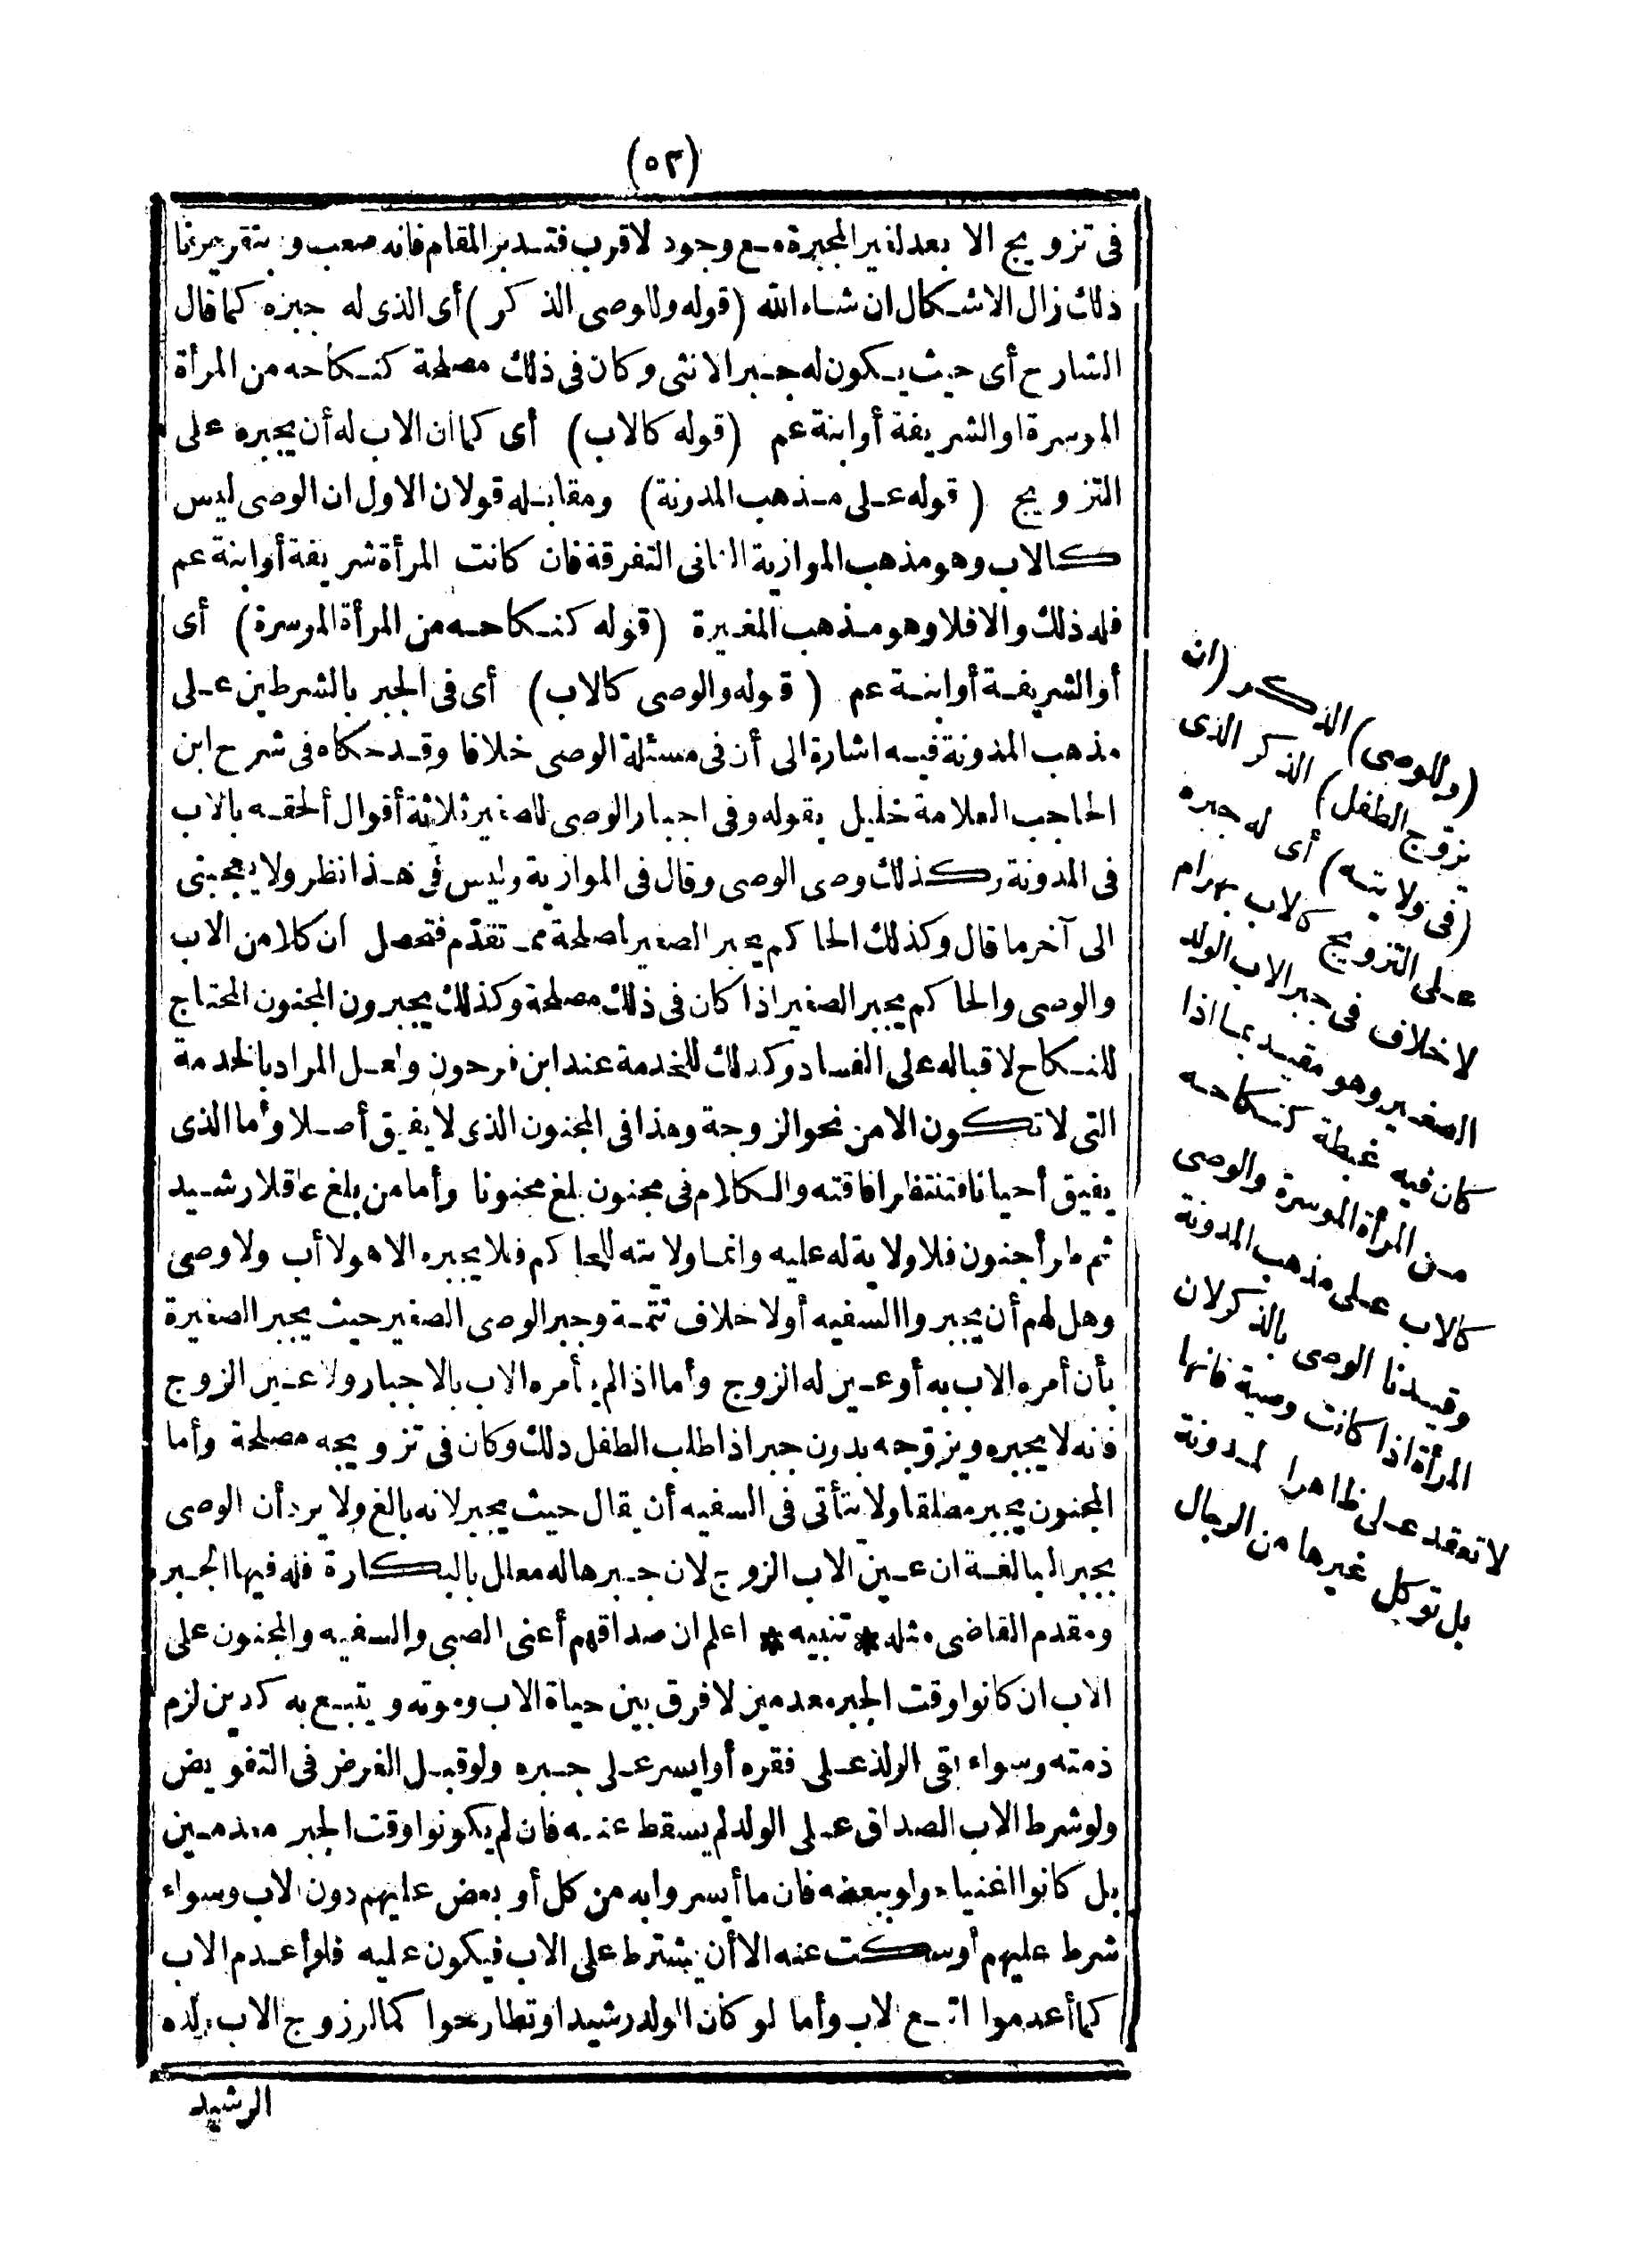 (٥٢)
فى تزويج الابعد لغير المجبرة مع وجود لاقرب فتدبر المقام فانه صعب وبتقريرنا
ذلك زال الاشكال ان شاء الله (قوله وللوصى الذكر) أى الذى له جبره كما قال
الشارح أى حيث يكون له جبر الانثى وكان فى ذلك مصلحة كنكاحه من المرأة
الموسرة او الشريفة أو ابنة عم (قوله كالاب) أى كما ان الاب له أن يجبره على
التزويج (قوله على مذهب المدونة) ومقابله قولان الاول ان الوصى ليس
كالاب وهو مذهب الموازية الثانى التفرقة فان كانت المرأة شريفة أو ابنة عم
فله ذلك والا فلا وهو مذهب المغيرة (قوله كنكاحه من المرأة الموسرة) أى
أو الشريفة أو ابنة عم (قوله والوصى كالاب) أى فى الجبر بالشرطين على
مذهب المدونة فيه اشارة الى أن فى مسئلة الوصى خلافا وقد حكاه فى شرح ابن
الحاجب العلامة خليل بقوله وفى اجبار الوصى للصغير ثلاثة أقوال ألحقه بالاب
فى المدونة وكذلك وصى الوصى وقال فى الموازية وليس فى هذا نظر ولا يعجبنى
الى آخر ما قال وكذلك الحاكم يجبر الصغير لمصلحة مما تقدّم فتحصل ان كلا من الاب
والوصى والحاكم يجبر الصغير اذا كان فى ذلك مصلحة وكذلك يجبرون المجنون المحتاج
للنكاح لاقباله على الفساد وكذلك للخدمة عند ابن فرحون ولعل المراد بالخدمة
التى لا تكون الا من نحو الزوجة وهذا فى المجنون الذى لا يفيق أصلا وأما الذى
يفيق أحيانا فتنتظر افاقته والكلام فى مجنون بلغ مجنونا وأما من بلغ عاقلا رشيد
ثم طرأ جنون فلا ولاية له عليه وانما ولايته للحاكم فلا يجبره الا هو لا أب ولا وصى
وهل لهم أن يجبروا السفيه أو لا خلاف تتمة وجبر الوصى الصغير حيث يجبر الصغيرة
بأن أمره الاب به أو عين له الزوج وأما اذا لم يأمره الاب بالاجبار ولا عين الزوج
فانه لا يجبره ويزوّجه بدون جبر اذا طلب الطفل ذلك وكان فى تزويجه مصلحة وأما
المجنون يجبر مطلقا ولا يتأتى فى السفيه أن يقال حيث يجبر لانه بالغ ولا يرد أن الوصى
يجبر البالغة ان عين الاب الزوج لان جبرها له معلل بالبكارة فله فيها الجبر
ومقدم القاضى مثله * تنبيه * اعلم ان صداقهم أعنى الصبى والسفيه والمجنون على
الاب ان كانوا وقت الجبر معدمين لا فرق بين حياة الاب وموته ويتبع به كدين لزم
ذمته وسواء بقى الولد على فقره أو ايسر على جبره ولو قبل الفرض فى التفويض
ولو شرط الاب الصداق على الولد لم يسقط عنه فان لم يكونوا وقت الجبر معدمين
بل كانوا اغنياء ولو ببعضه فان ما أيسروا به من كل أو بعض عليهم دون الاب وسواء
شرط عليهم أو سكت عنه الا أن يشترط على الاب فيكون عليه فلو أعدم الاب
كما أعدموا اتبع الاب وأما لو كان الولد رشيدا وتطارحوا كما لو زوج الاب ولده
الرشيد
(وللوصى) الذكر (ان
يزوّج الطفل) الذكر الذى
(فى ولايته) أى له جبره
على التزويج كالاب بهرام
لا خلاف فى جبر الاب الولد
الصغير وهو مقيد بما اذا
كان فيه غبطة كنكاحه
من المرأة الموسرة والوصى
كالاب على مذهب المدونة
وقيدنا الوصى بالذكر لان
المرأة اذا كانت وصية فانها
لا تعقد على ظاهر المدونة
بل توكل غيرها من الرجال